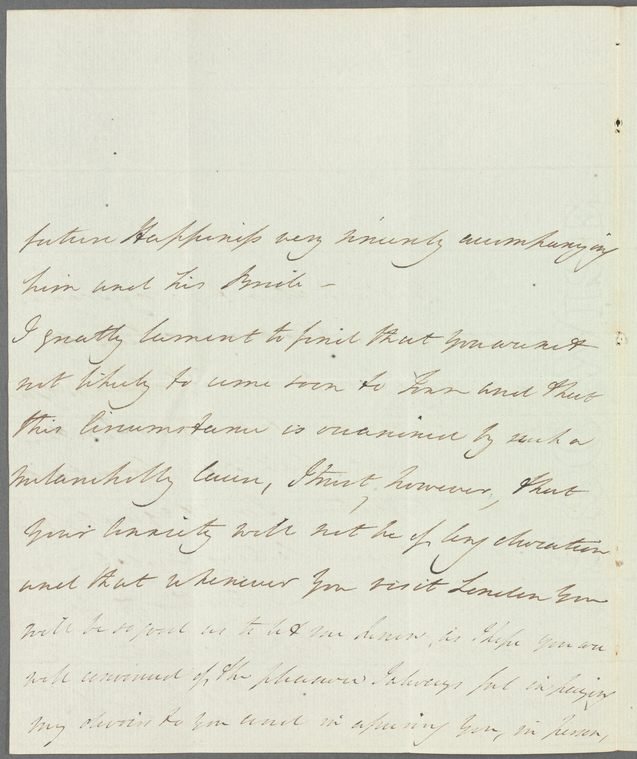 future Happiness very sincerely accompanying
him and his Bride –
I greatly lament to find that you are not
not likely to come soon to Town and that
this Circumstance is occasioned by such a
melancholly Cause, I trust, however, that
your Anxiety will not be of long duration
and that whenever you visit London you
will be so good as to let me know, as I hope you are
well convinced of the pleasure I always feel in paying
my devoirs to you and in assuring you, in person,